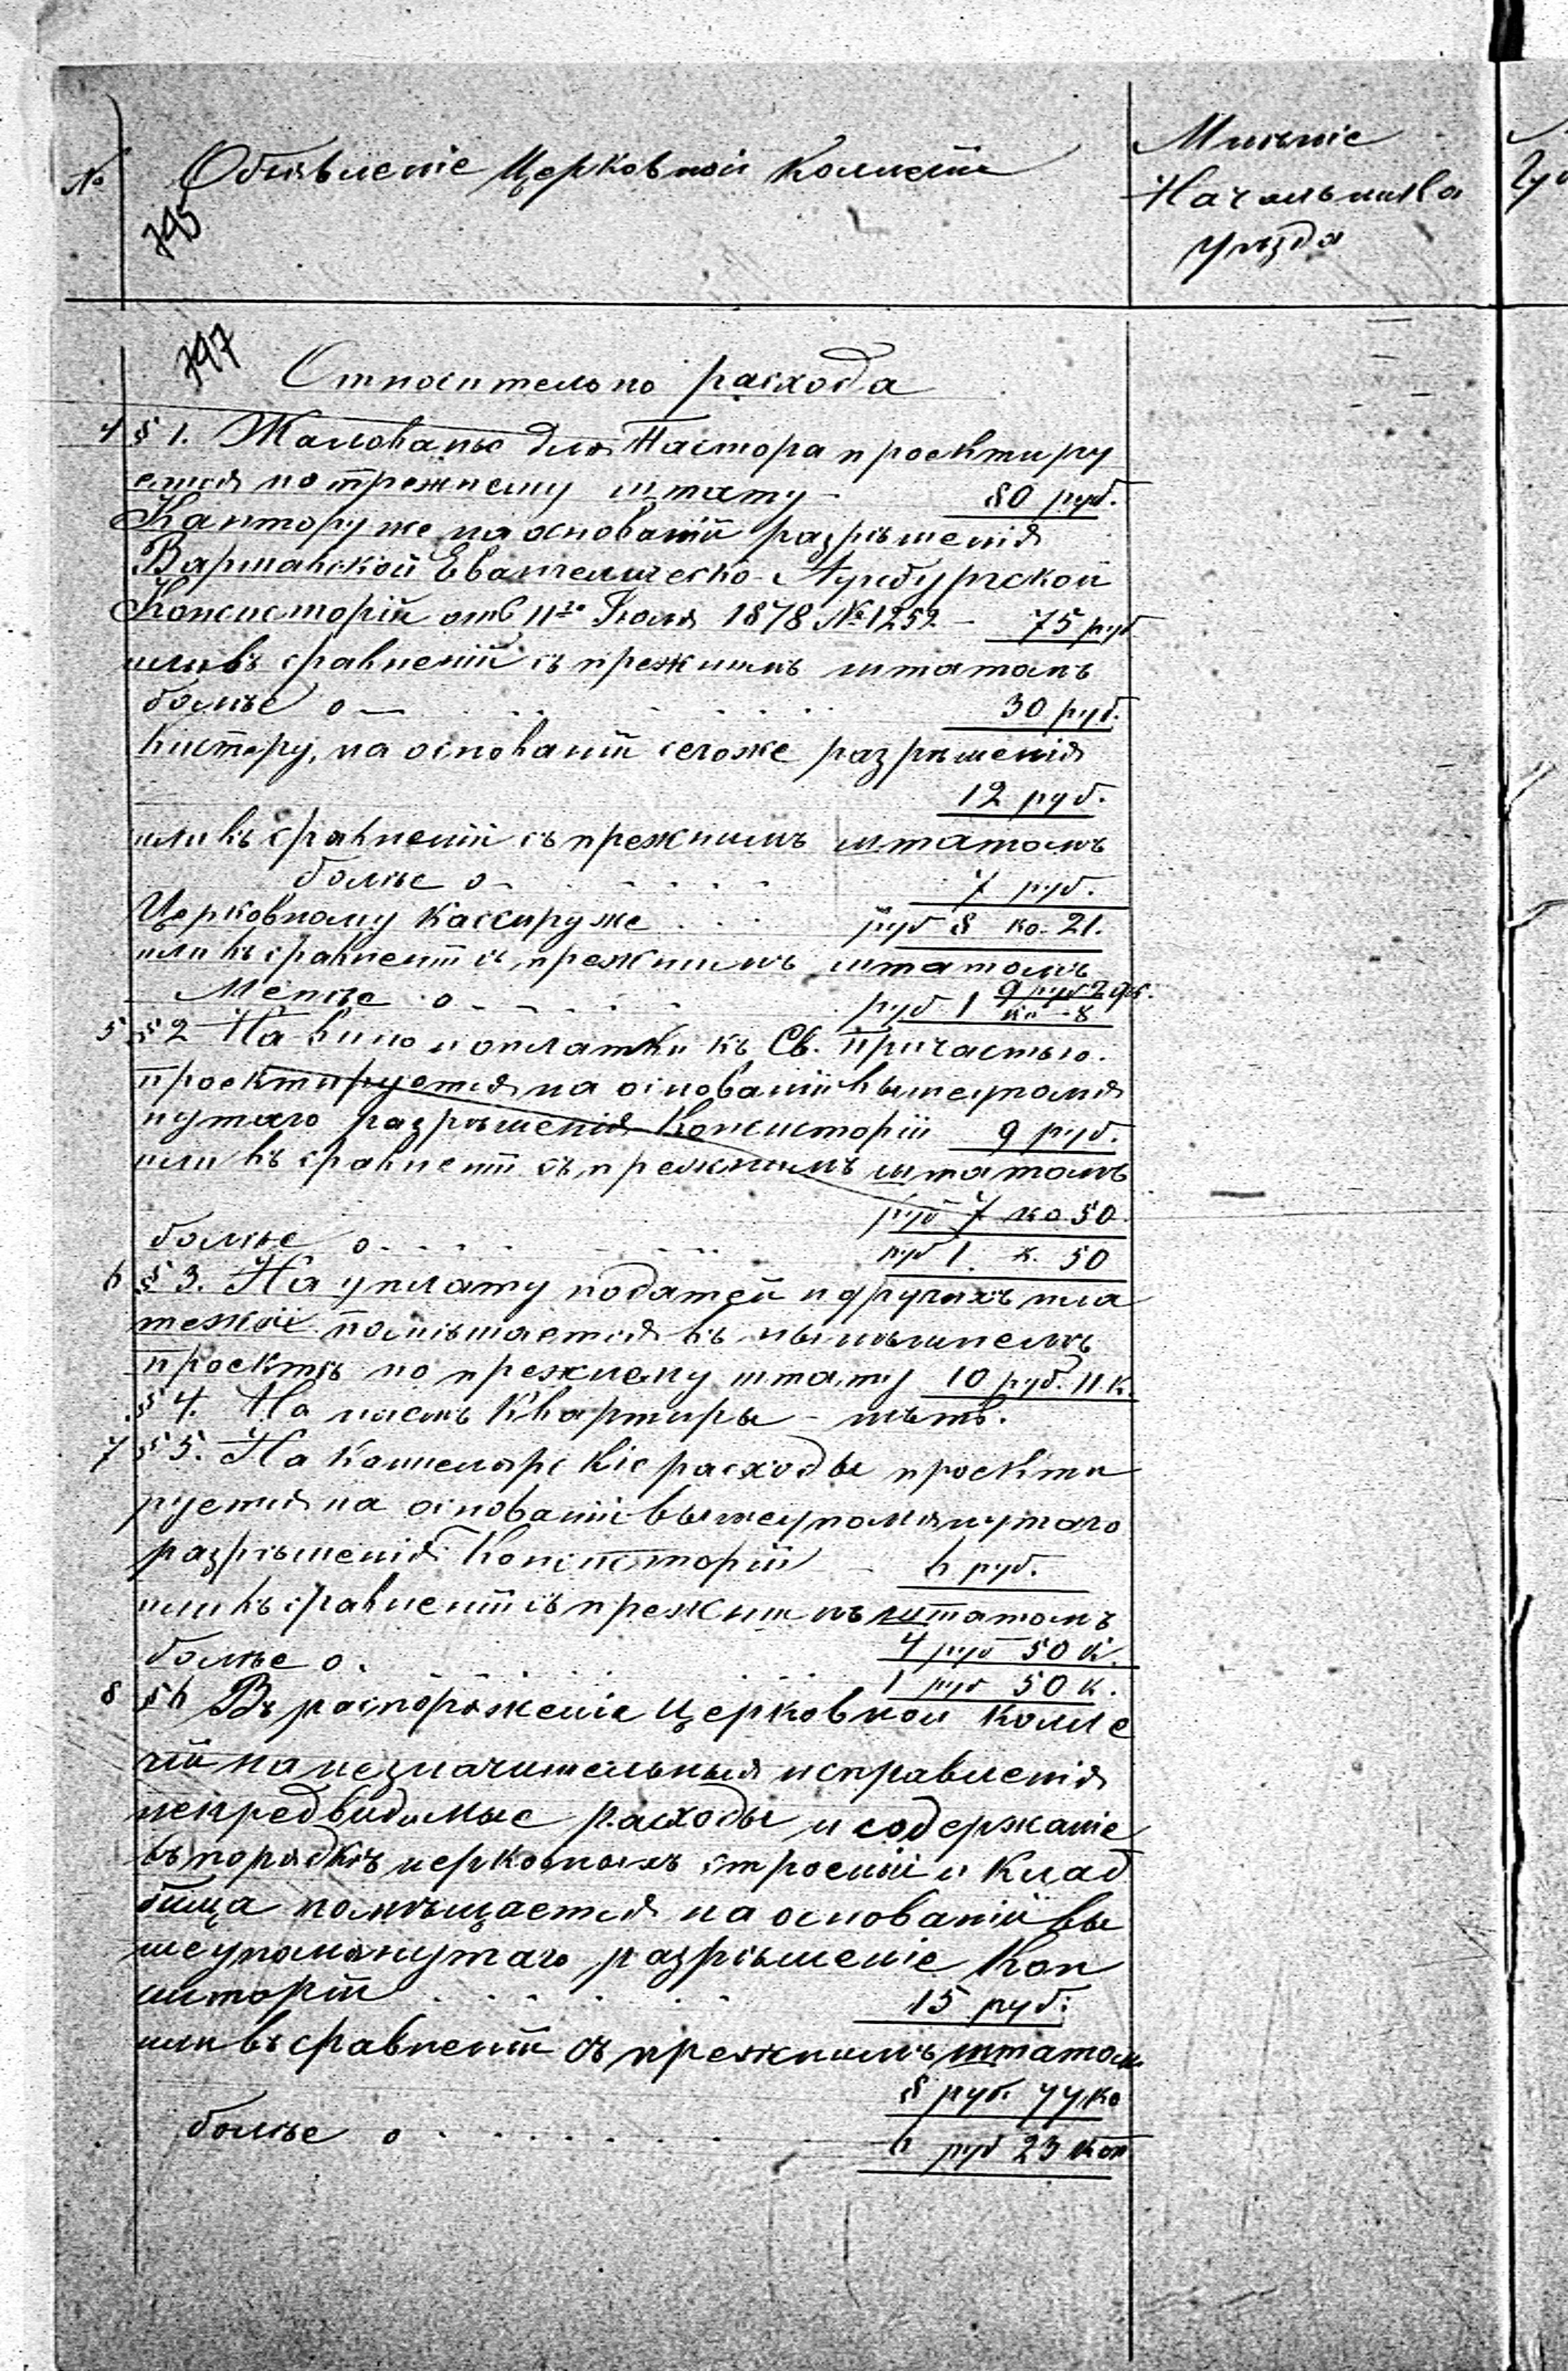 №
Объявленіе Церковной Коллегіи
Мнѣніе
Начальника
уѣзда
795
797
Относительно расхода
4 § 1. Жалованье для Пастора проектиру
ется по прежнему штату - 80 руб.
Кантору же на основаніи разрѣшенія
Варшавской Евангелическо-Аугсбургской
Консисторіи отъ 11го Іюля 1878 № 1252 - 75 руб
или въ сравненіи съ прежнимъ штатомъ
болѣе о — 30 руб.
Кистеру, на основаніи сегоже разрѣшенія
12 руб.
или въ сравненіи съ прежнимъ штатомъ
болѣе о - 7 руб.
Церковному Кассиру же руб 8 ко. 21.
или въ сравненіи съ прежнимъ штатомъ
9 руб 29 к.
Менѣе о - руб 1 ко - 8
5 § 2 На вино и оплатки къ Св. Причастью.
проектируется на основаніи вышеупомя
нутаго разрѣшенія Консисторіи 9 руб.
или въ сравненіи съ прежнимъ штатомъ
руб 7 ко 50.
болѣе о - руб 1. к. 50
6 § 3. На уплату податей и другихъ пла
тежей помѣщается въ нынѣшнемъ
проектѣ по прежнему штату 10 руб. 11 к.
§ 4. На наемъ Квартиры - нѣтъ.
7 § 5. На Канцелярскіе расходы проекти
руется на основаніи вышеупомянутаго
разрѣшенія Консисторіи - 6 руб.
или въ сравненіи съ прежнимъ штатомъ
4 руб 50 к.
болѣе о. 1 руб 50 к.
8 § 6 Въ распоряженіе Церковной Колле
гіи на незначительныя исправленія
непредвидимые расходы и содержаніе
въ порядкѣ церковныхъ строеній и Клад
бища помѣщается на основаніи вы
шеупомянутаго разрѣшеніе Кон
систоріи 15 руб.
или въ сравненіи съ прежнимъ штатомъ
8 руб. 77 ко
болѣе о 6 руб 23 коп